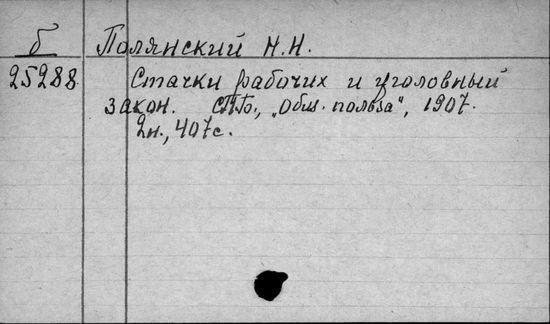 б Полянский Н.Н.
25288 Стачки рабочих и уголовный
закон. СПБ., „Общ. польза“, 1907.
2н., 407с.